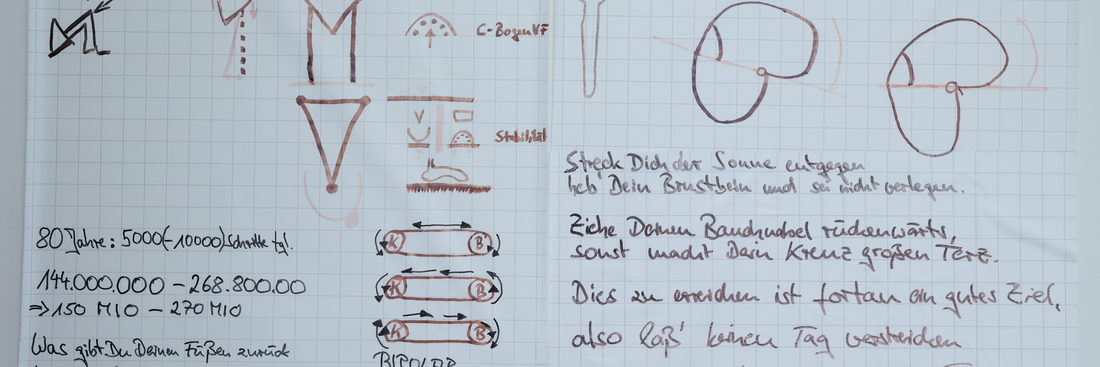 C-Bogen VF
Stabilität
V
80 Jahre: 5000 (-10000) Schritte tgl.
144.000.000 – 268.800.00
⇒ 150 MIO – 270 MIO
Was gibst Du Deinen Füßen zurück
K B
K B
K B
BIPOLAR
Streck Dich der Sonne entgegen
heb Dein Brustbein und sei nicht verlegen.
Ziehe Deinen Bauchnabel rückenwärts,
sonst macht Dein Kreuz großen Terz.
Dies zu erreichen ist fortan ein gutes Ziel,
also laß' keinen Tag verstreichen